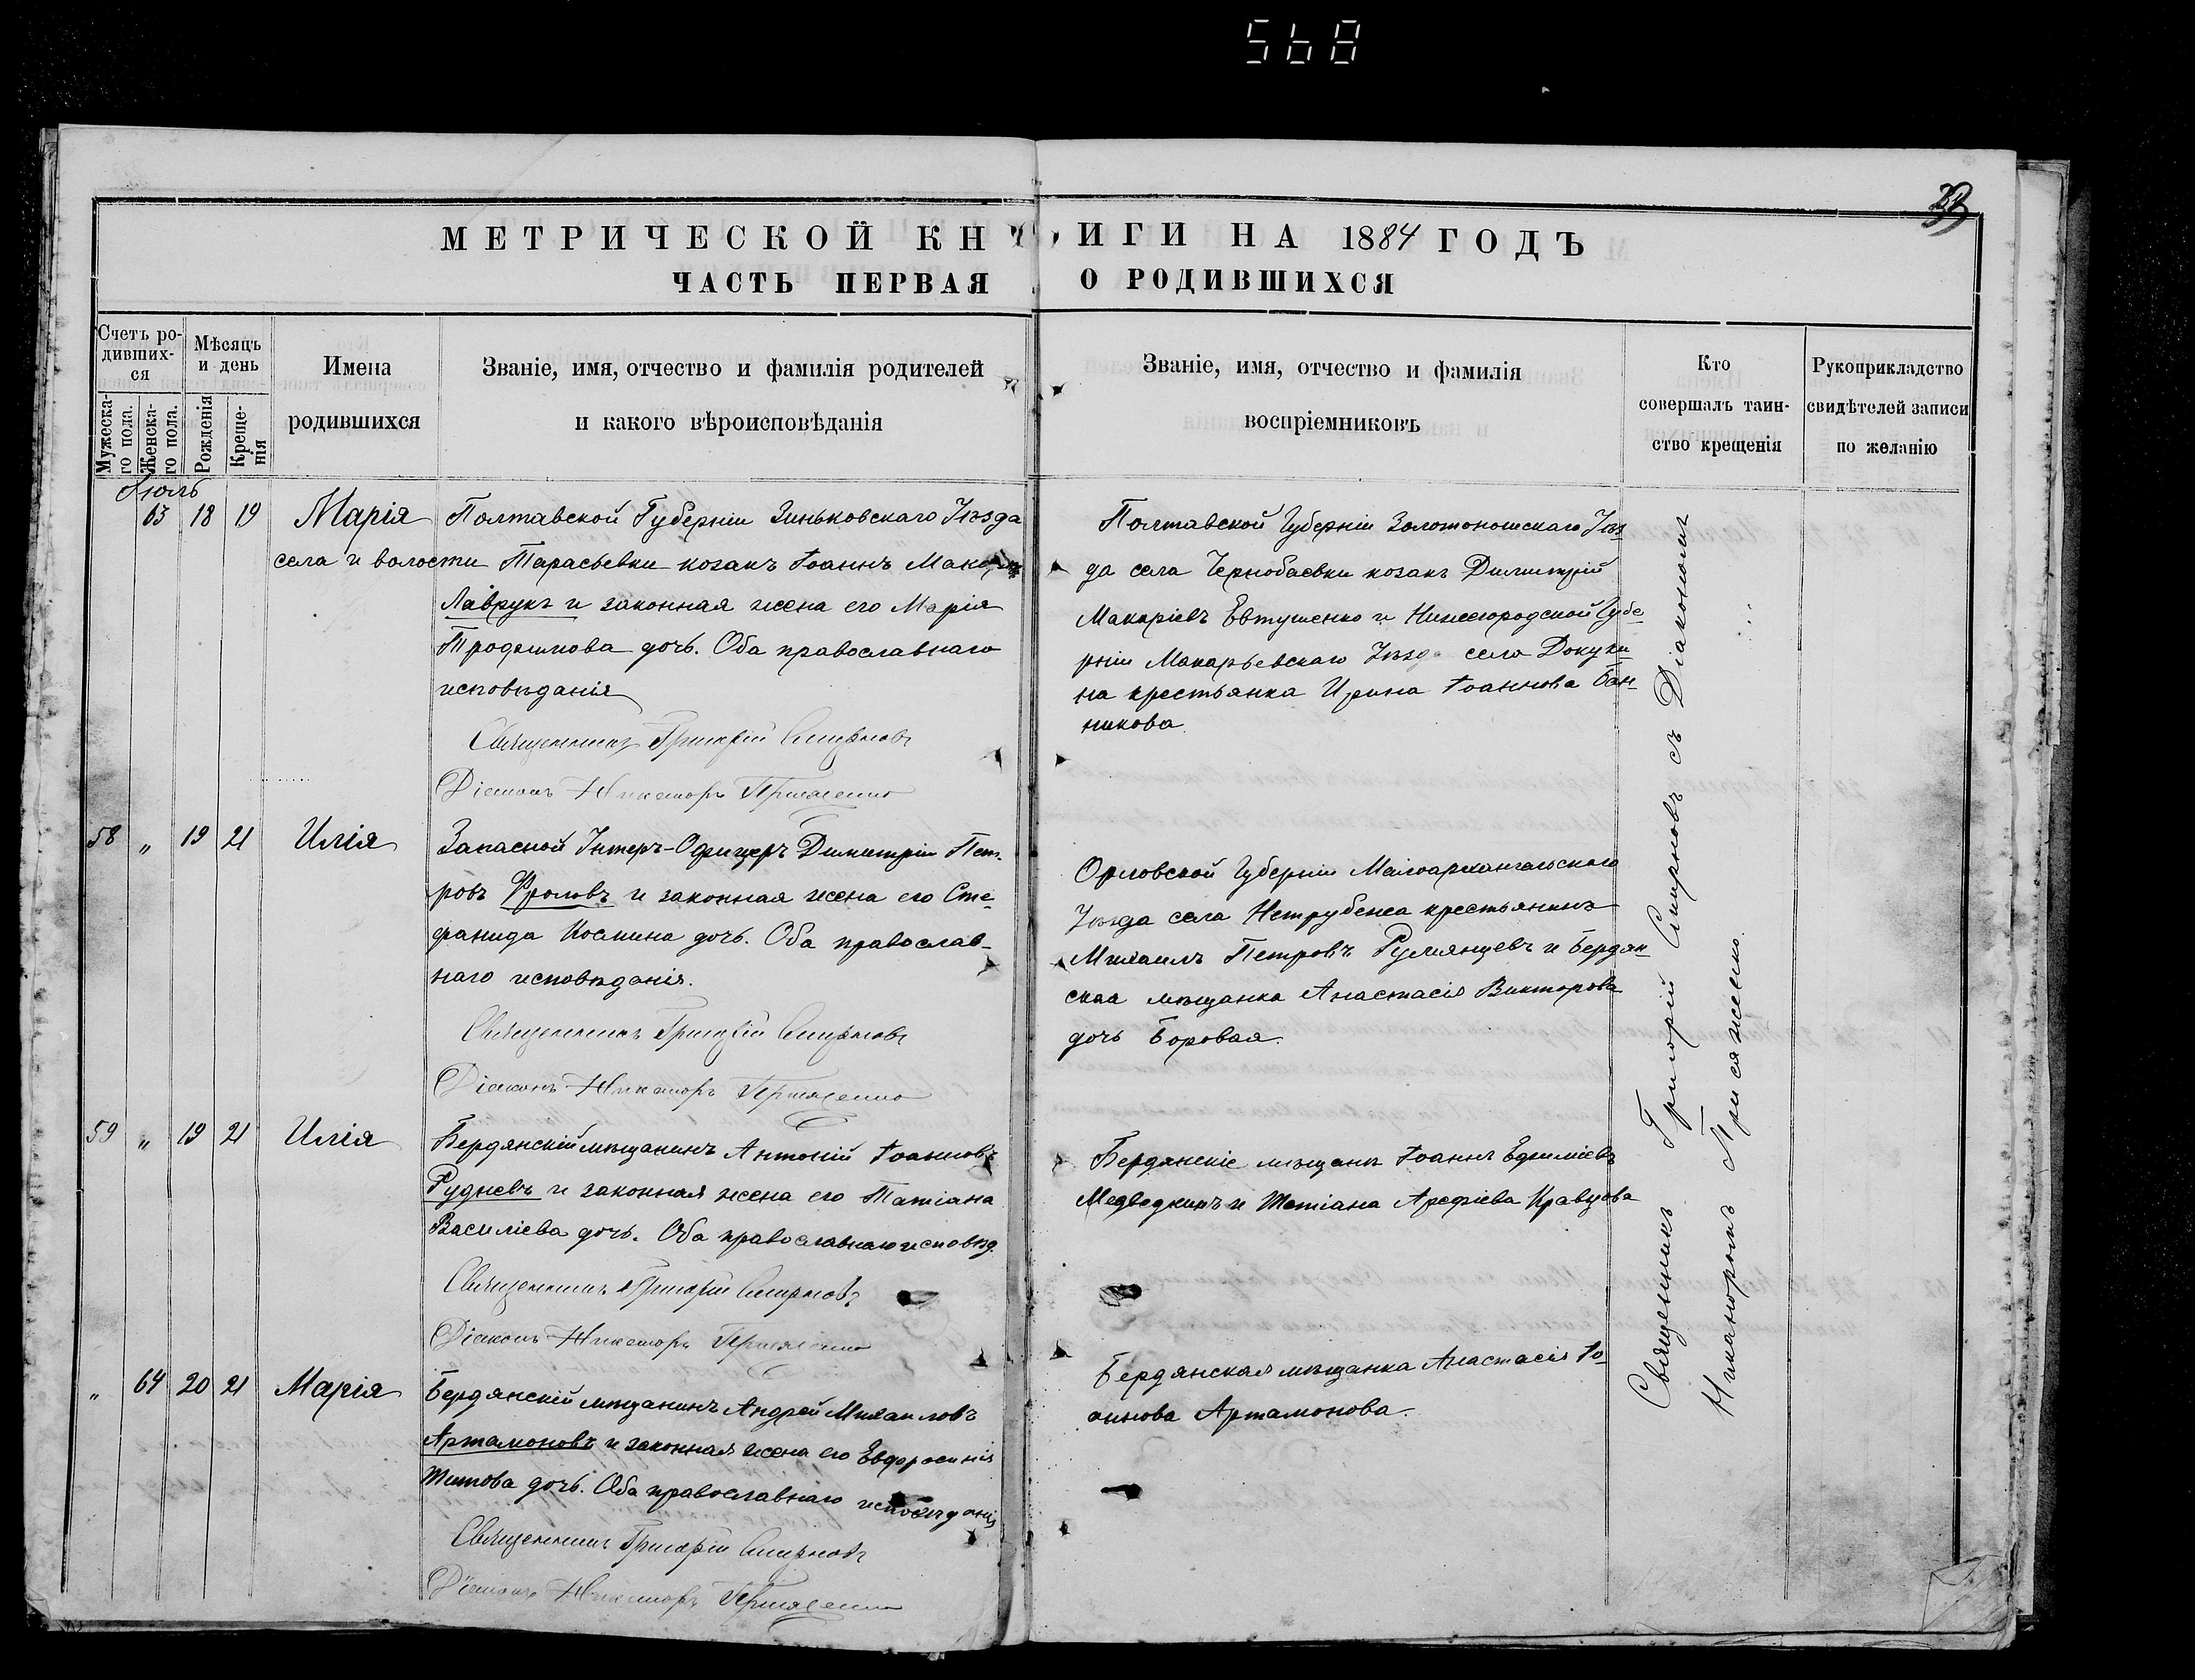 568
33
МЕТРИЧЕСКОЙ КНИГИ НА 1884 ГОДЪ
ЧАСТЬ ПЕРВАЯ О РОДИВШИХСЯ
Счетъ ро-
дивших-
ся
Мужеска-
го пола.
Женска-
го пола.
Мѣсяцъ
и день
Рожденія
Креще-
нія
Имена
родившихся
Званіе, имя, отчество и фамилія родителей
и какого вѣроисповѣданія
Званіе, имя, отчество и фамилія
воспріемниковъ
Кто
совершалъ таин-
ство крещенія
Рукоприкладство
свидѣтелей записи
по желанію
Іюль
63 18 19 Марія Полтавской Губерніи Зиньковскаго Уѣзда
села и волости Тарасьевки козакъ Іоаннъ
Лаврукъ и законная жена его Марія
Трофимова дочь. Оба православнаго
исповѣданія
Священникъ Григорій Смирновъ
Діаконъ Никаноръ Присяженко
Полтавской Губерніи Золотоношскаго Уѣз-
да села Чернобаевки козакъ Димитрій
Макаріевъ Евтушенко и Нижегородской Губе-
рніи Макарьевскаго Уѣзда села Докуки-
на крестьянка Ирина Іоаннова Бан-
никова.
58 „ 19 21 Илія Запасной Унтеръ-Офицеръ Димитрій Пет-
ровъ Фроловъ и законная жена его Сте-
фанида Космина дочь. Оба православ-
наго исповѣданія.
Священникъ Григорій Смирновъ
Діаконъ Никаноръ Присяженко
Орловской Губерніи Малоархангельскаго
Уѣзда села Нетрубежа крестьянинъ
Михаилъ Петровъ Румянцевъ и Бердян-
ская мѣщанка Анастасія Викторова
дочь Боровая.
59 „ 19 21 Илія Бердянскій мѣщанинъ Антоній Іоанновъ
Рудневъ и законная жена его Татіана
Василіева дочь. Оба православнаго исповѣд.
Священникъ Григорій Смирновъ
Діаконъ Никаноръ Присяженко
Бердянскіе мѣщане Іоаннъ Ефиміевъ
Медведкинъ и Татіана Арефіева Кравцова
„ 64 20 21 Марія Бердянскій мѣщанинъ Андрей Михаиловъ
Артамоновъ и законная жена его Евфросинія
Титова дочь. Оба православнаго исповѣданія
Священникъ Григорій Смирновъ
Діаконъ Никаноръ Присяженко
Бердянская мѣщанка Анастасія Іо-
аннова Артамонова.
Священникъ Григорій Смирновъ съ Діакономъ
Никаноромъ Присяженко.